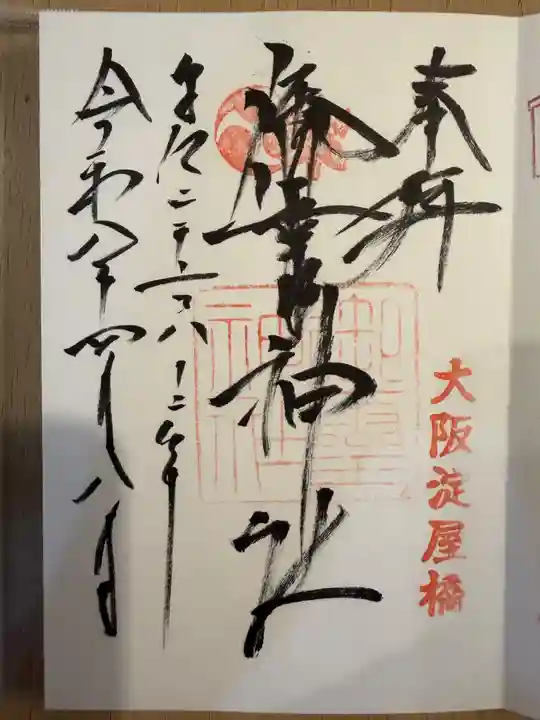 奉拝
大阪淀屋橋
御霊神社
皇紀二千六百八十六年
令和八年四月八日